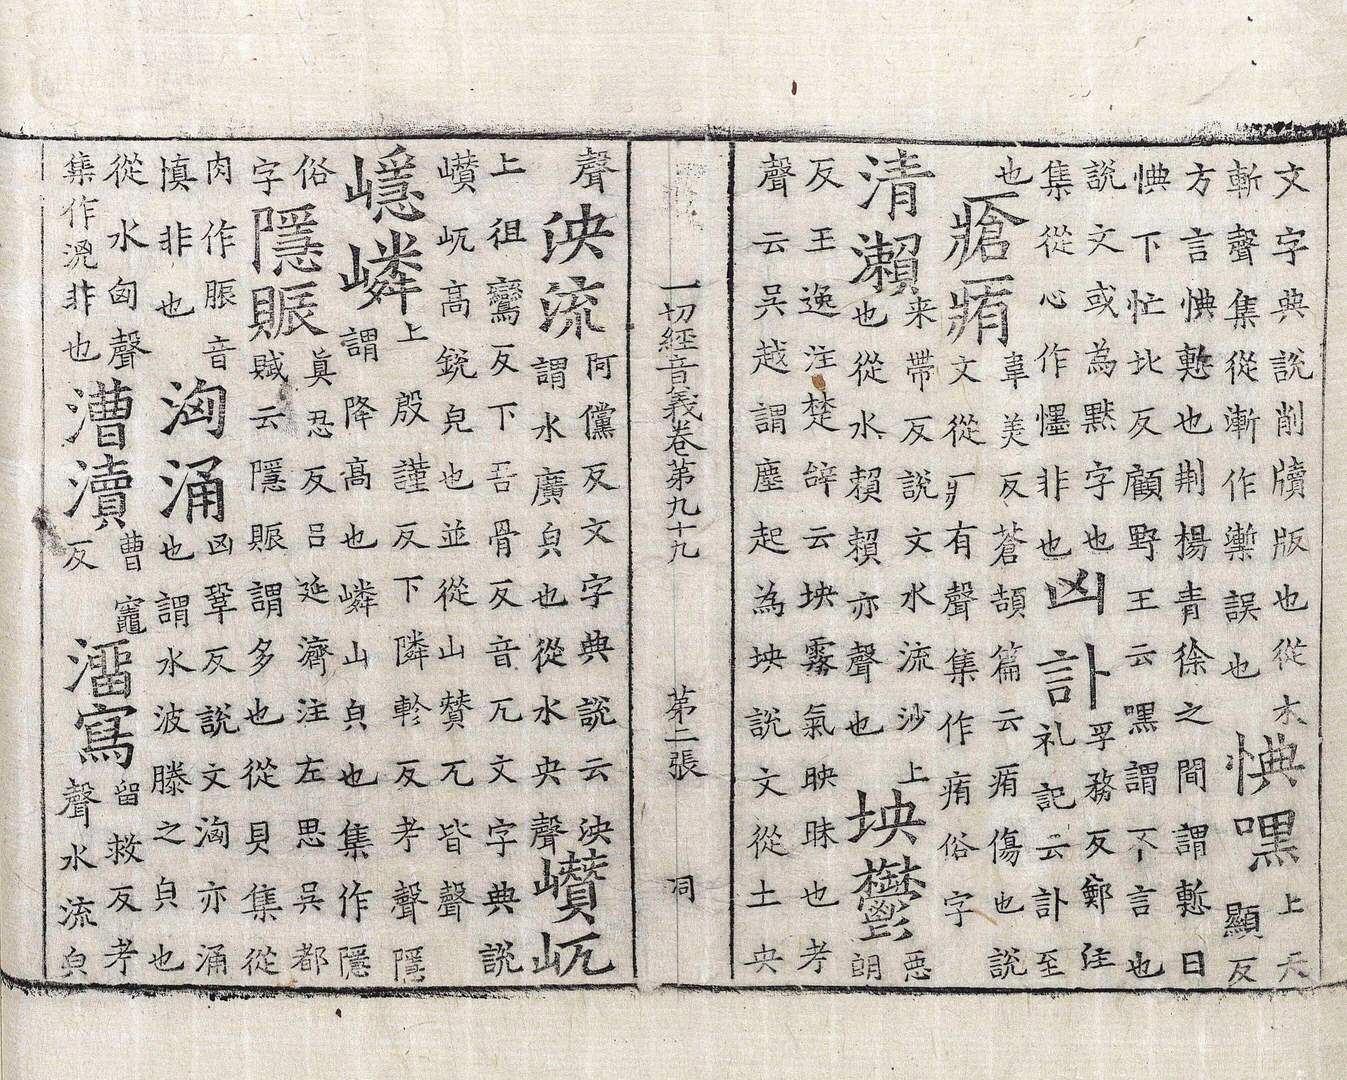 文字典說削牘版也從木
斬聲集從漸作槧誤也
㥏嘿
上天
顯反
方言㥏慙也荆楊青徐之間謂慙曰
㥏下忙北反顧野王云嘿謂不言也
說文或為默字也
集從心作㦄非也
凶訃
孚務反鄭注
礼記云訃至
也
瘡痏
韋美反蒼頡篇云痏傷也說
文從疒有聲集作痏俗字
清瀨
来帶反說文水流沙上
也從水賴賴亦聲也
坱鬱
惡
朗
反王逸注楚辞云坱霧氣映昧也考
聲云吳越謂塵起為坱說文從土央
一切經音義卷第九十九 第二張 洞
聲
泱流
阿儻反文字典說云泱
謂水廣皃也從水央聲
巑岏
上徂鸞反下吾骨反音兀文字典說
巑岏高銳皃也並從山贊兀皆聲
嶾嶙
上殷謹反下隣軫反考聲隱
謂降高也嶙山皃也集作隱
俗
字
隱賑
真忍反呂延濟注左思吳都
賦云隱賑謂多也從貝集從
肉作脤音
慎非也
洶涌
凶鞏反說文洶亦涌
也謂水波滕之皃也
從水匈聲
集作㴏非也
漕瀆
曹竈
反
澑寫
留救反考
聲水流皃